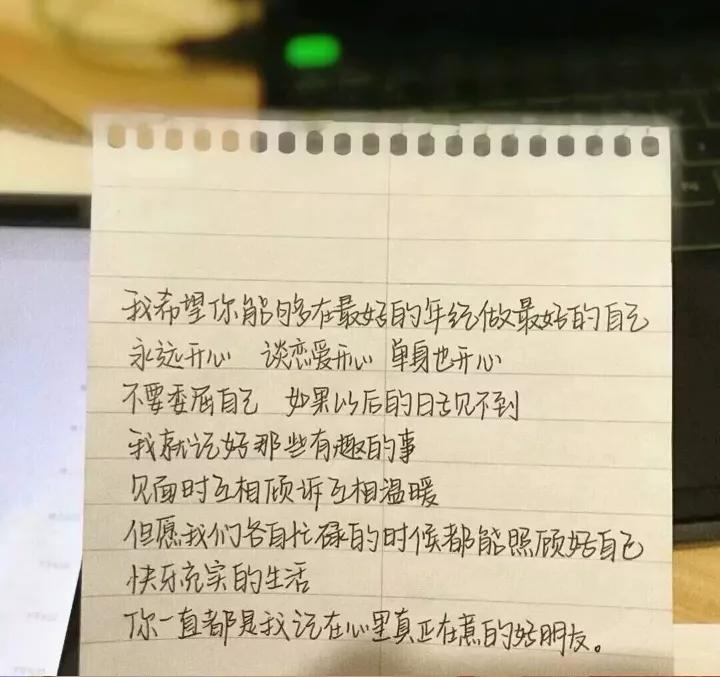 我希望你能够在最好的年纪做最好的自己
永远开心 谈恋爱开心 单身也开心
不要委屈自己 如果以后的日子见不到
我就记好那些有趣的事
见面时互相倾诉互相温暖
但愿我们各自忙碌的时候都能照顾好自己
快乐充实的生活
你一直都是我记在心里真正在意的好朋友。